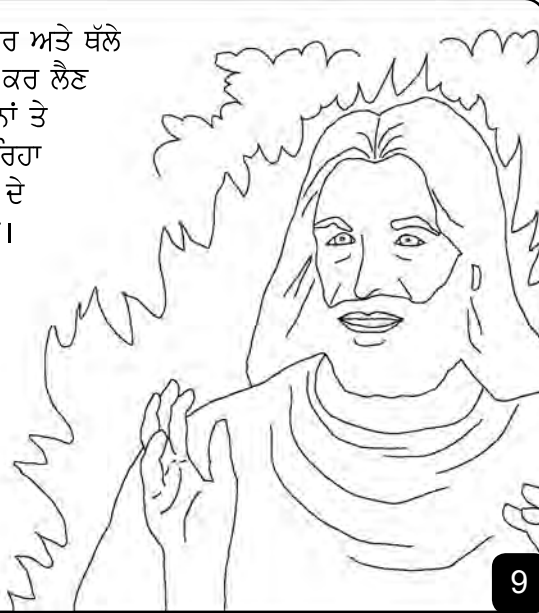 ਰ ਅਤੇ ਥੱਲੇ
ਕਰ ਲੈਣ
ਨਾਂ ਤੇ
ਰਿਹਾ
ਦੇ
।
9